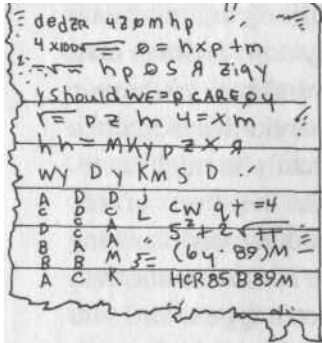 dedzя 4zømhp
4x100r ø=hxp+m
hp ø S Я ziqy
y should WE=p CAREØy
p z m 4=xm
hh=MKypzXЯ
WY D y KM S D
A D D J
C D C L CW qt=4
D C A 5²+2
B A A (6y 89)M
B B M 5=
A C K HCR85B89M